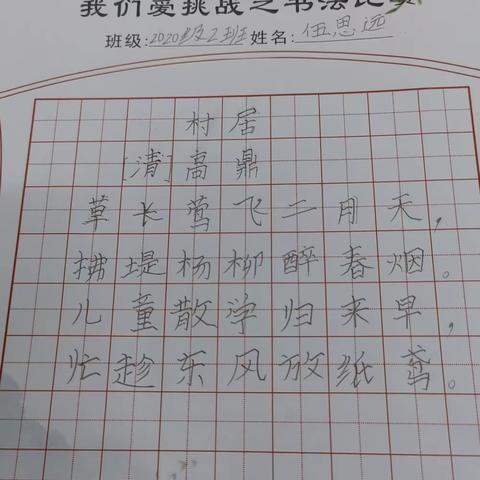 我们爱挑战之书法比赛
班级:2020级2班 姓名:伍思远
村居
[清]高鼎
草长莺飞二月天,
拂堤杨柳醉春烟。
儿童散学归来早,
忙趁东风放纸鸢。